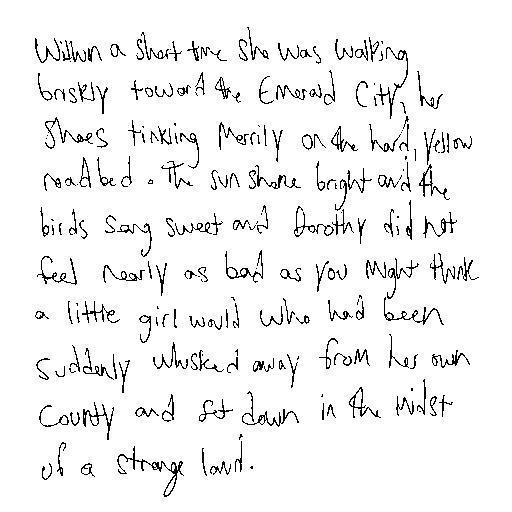 Within a short time she was walking
briskly toward the Emerald City, her
Shoes tinkling merrily on the hard, yellow
roadbed. The sun shone bright and the
birds sang sweet and Dorothy did not
feel nearly as bad as you might think
a little girl would who had been
suddenly whisked away from her own
County and set down in the midst
of a strange land.